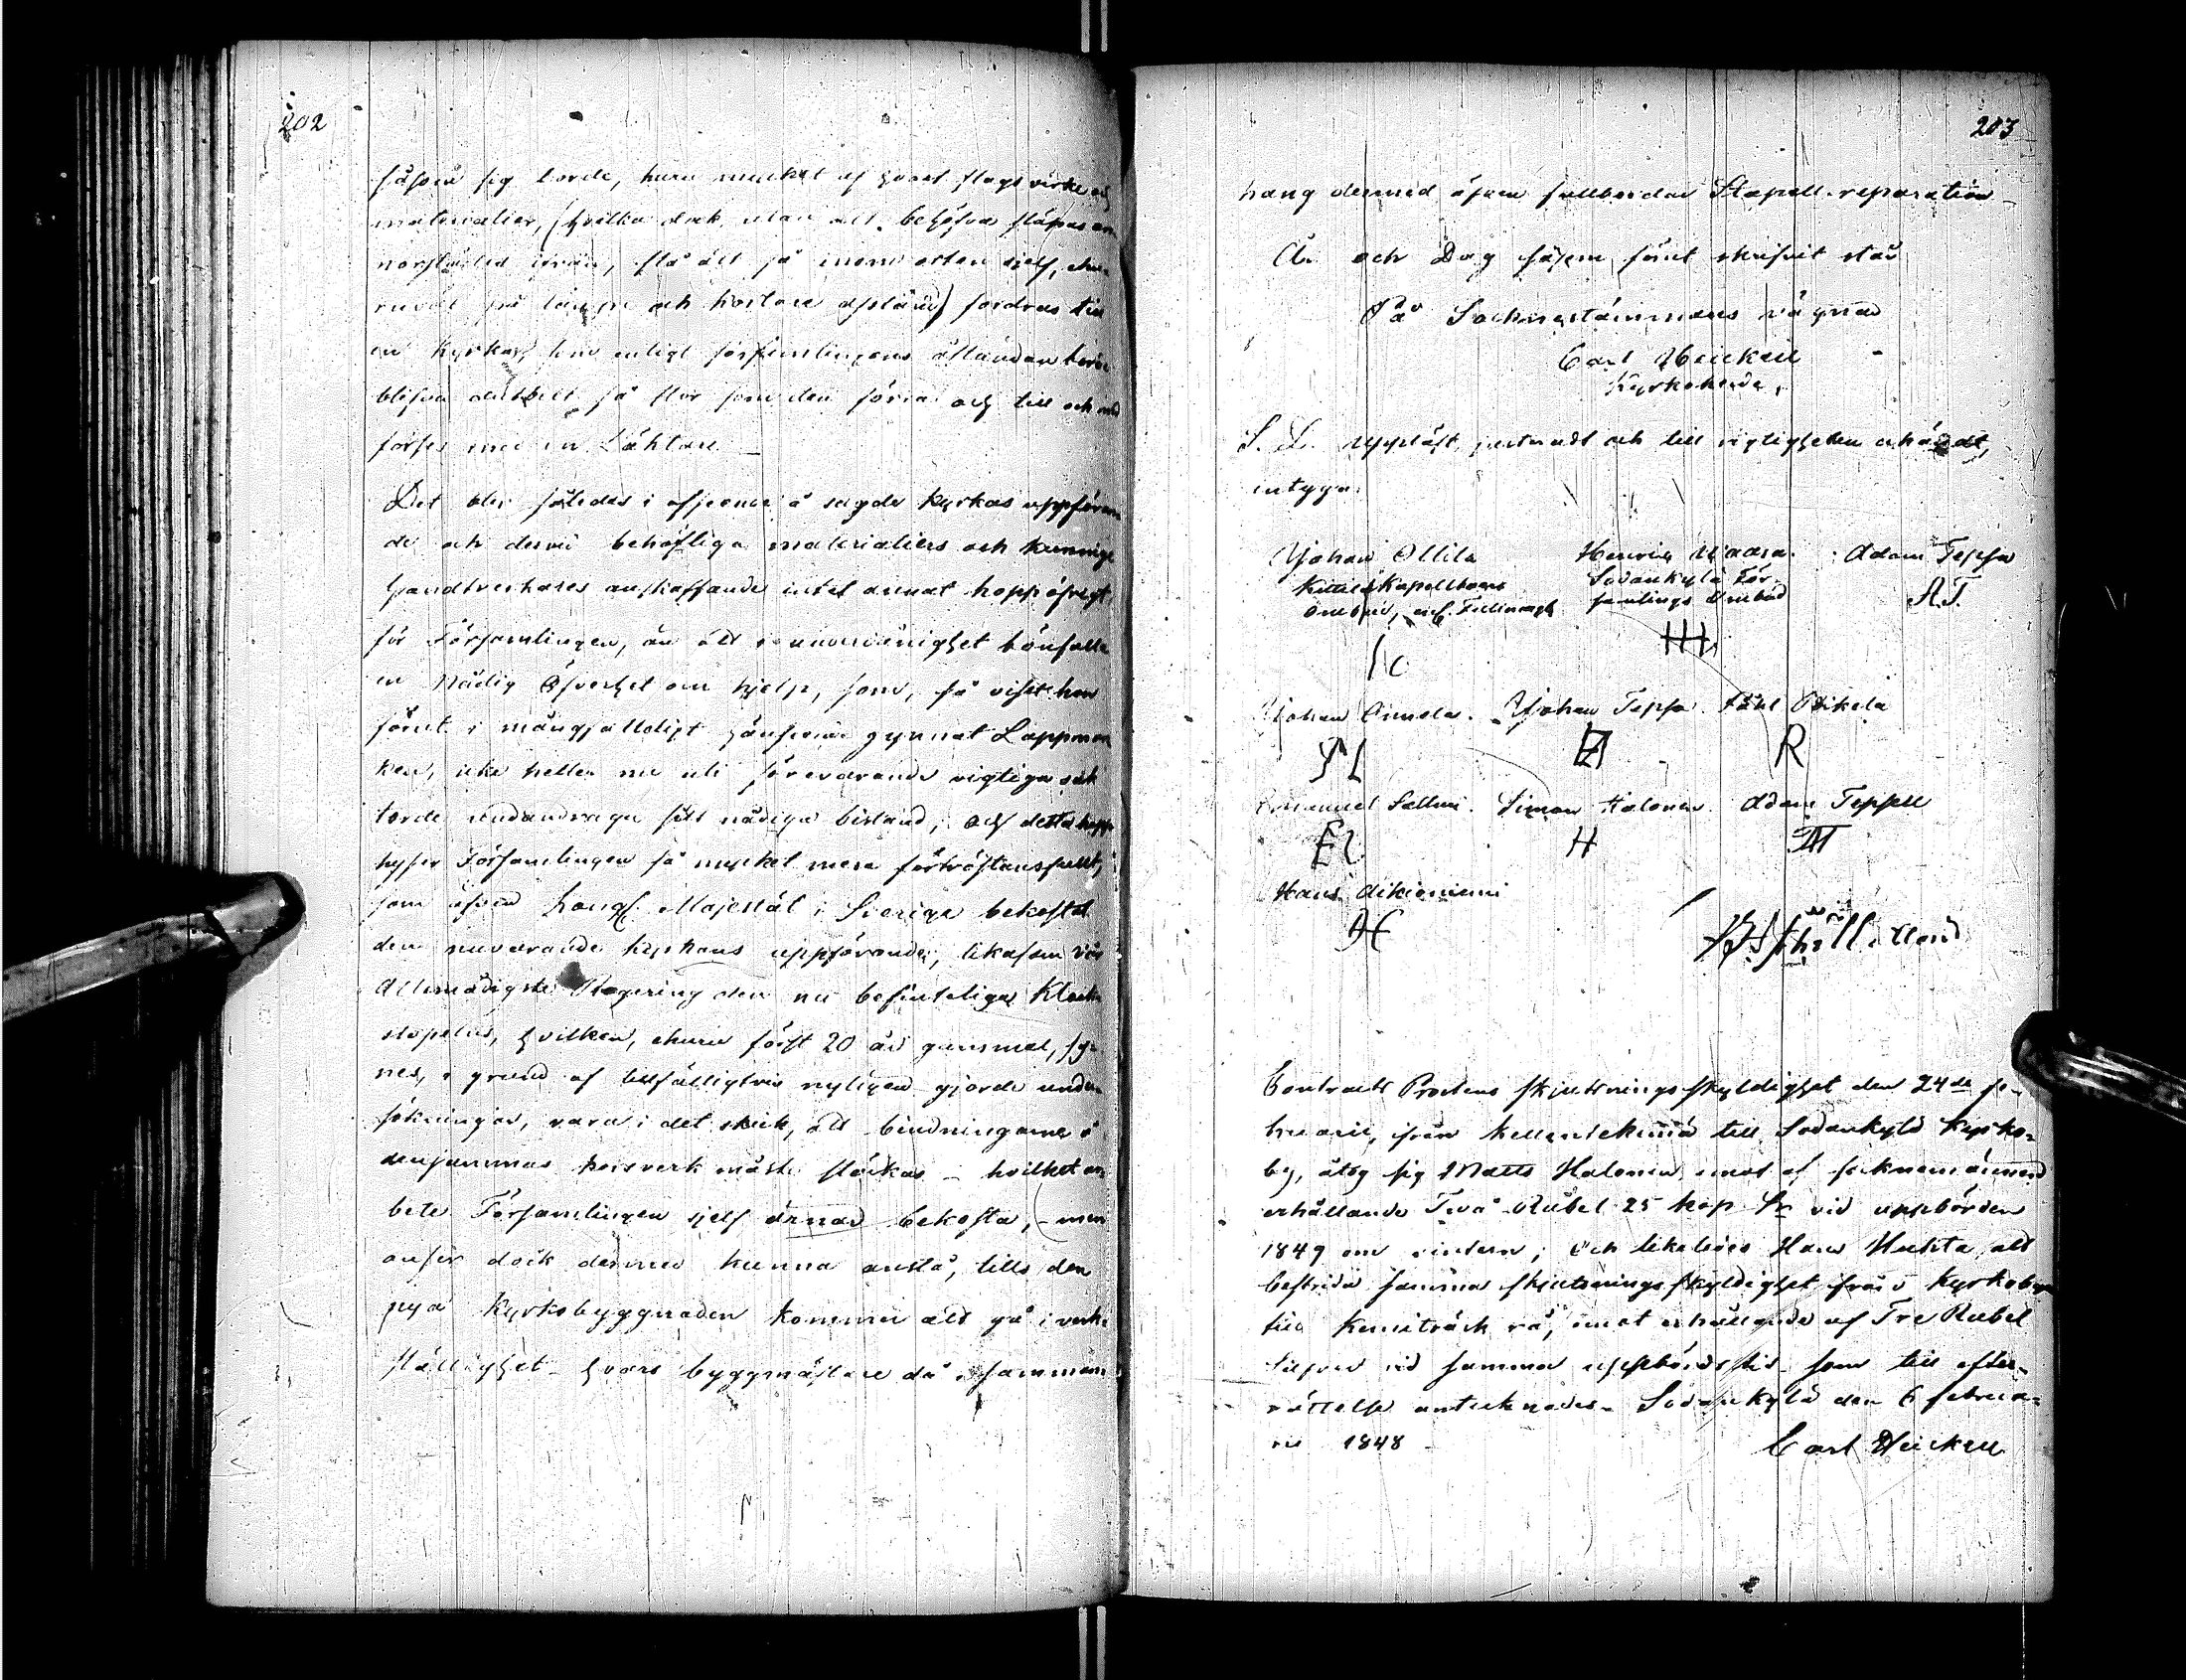 202
såsom sig borde, huru mycket af hvart slags virke och
materialier, (hvilka dock, utan att behöfva släpas an-
norstädes ifrån, stå att få inom orten sjelf, ehu-
ruväl på längre och kortare afstånd) fordras till
en kyrka, som enligt församlingens åstundan borde
blifva dubbelt så stor som den förra och till och med
förses med en Läktare. –
Det blir således i afseende å sagde kyrkas uppföran-
de och dervid behöfliga materialiers och kunnige
handtverkares anskaffande intet annat hopp öfrigt
för Församlingen, än att i underdånighet bönfalla
en Nådig Öfverhet om hjelp, som, så visst hon
förut i mångfalldigt hänseende gynnat Lappmar-
ken, icke heller nu uti förevarande vigtiga sak
torde undandraga sitt nådiga bistånd; och detta hopp
hyser Församlingen så mycket mera förtröstansfullt,
som äfven Kongl. Majestät i Sverige bekostat
den nuvarande kyrkans uppförande, likasom vår
Allernådigste Regering den nu befinteliga Klock-
stapelns, hvilken, ehuru först 20 år gammal, sy-
nes, i grund af tillfälligtvis nyligen gjorde under-
sökningar, vara i det skick, att bindningarne å
densammas korsverk måste stärkas – hvilket ar-
bete Församlingen sjelf ärnar bekosta, – men
anser dock dermed kunna anstå, tills den
nya kyrkobyggnaden kommer att gå i verk-
ställighet – hvars byggmästare då i samman-
203
hang dermed äfven fullbordar Stapell-reparation –
År och Dag såsom förut skrifvit står
På Sockenestämmans vägnar
Carl Heickell
Kyrkoherde.
S. D. Uppläst, justeradt och till rigtigheten erkändt,
intyga:
Johan Ollila Henrik Adam Teppo
Kittilä Kapellboers Sodankylä För- A.T.
Ombud, församlings Ombud
Johan Onnela. Johan Teppo. Påhl Riikola
R
Emanuel Sattni. Simon Halonen. Adam Teppell
H
Hans Aikioniemi
Contracts Prostens skjutsningsskyldighet den 24de fe-
bruarii, ifrån till Sodankylä kyrko-
by, åtog sig Matts Halonen emot af socknemännen
erhållande Två Rubel 25 kop Sr vid uppbörden
1849 om vintern; och likaledes Hans Huhta att
bestrida samma skjutsningsskyldighet från kyrkobyn
till Kemiträsk rå, emot erhållande af Tre Rubel
Silfver vid samma uppbördstid – som till efter-
rättelse antecknades – Sodankylä den 6 februa-
rii 1848 – Carl Heickell